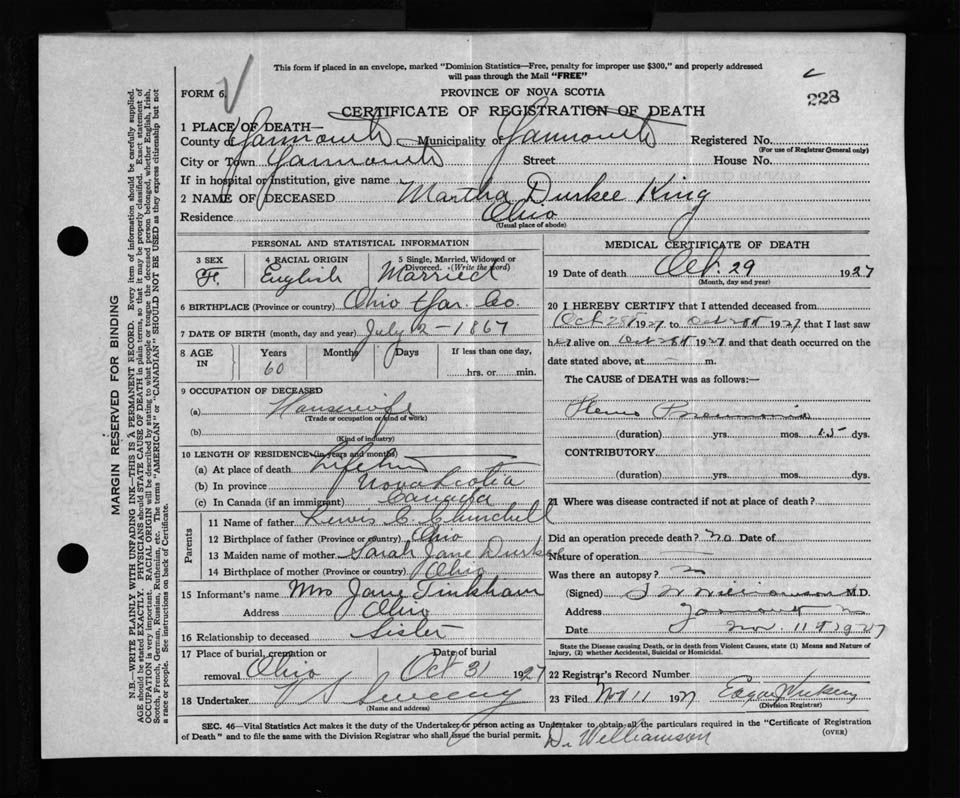 This form if placed in an envelope, marked "Dominion Statistics—Free, penalty for improper use $300," and properly addressed
will pass through the Mail "FREE"
FORM 6.
PROVINCE OF NOVA SCOTIA
228
CERTIFICATE OF REGISTRATION OF DEATH
1 PLACE OF DEATH—
County of Yarmouth Municipality of Yarmouth Registered No.
(For use of Registrar General only)
City or Town Yarmouth Street House No.
If in hospital or institution, give name
2 NAME OF DECEASED Martha Durkee King
Residence Ohio
(Usual place of abode)
PERSONAL AND STATISTICAL INFORMATION
3 SEX 4 RACIAL ORIGIN 5 Single, Married, Widowed or
Divorced. (Write the word)
F. English Married
6 BIRTHPLACE (Province or country) Ohio Yar. Co.
7 DATE OF BIRTH (month, day and year) July 2 - 1867
8 AGE IN Years Months Days If less than one day,
60 hrs. or min.
9 OCCUPATION OF DECEASED
(a) Housewife
(Trade or occupation or kind of work)
(b)
(Kind of industry)
10 LENGTH OF RESIDENCE (in years and months)
(a) At place of death Lifetime
(b) In province Nova Scotia
(c) In Canada (if an immigrant) Canada
Parents
11 Name of father Lewis C Churchill
12 Birthplace of father (Province or country) Ohio
13 Maiden name of mother Sarah Jane Durkee
14 Birthplace of mother (Province or country) Ohio
15 Informant's name Mrs Jane Tinkham
Address Ohio
16 Relationship to deceased Sister
17 Place of burial, cremation or Date of burial
removal Ohio Oct 31 1927
18 Undertaker V S Sweeny
(Name and address)
MEDICAL CERTIFICATE OF DEATH
19 Date of death Oct. 29 1927
(Month, day and year)
20 I HEREBY CERTIFY that I attended deceased from
Oct 28 1927 to Oct 28 1927 that I last saw
her alive on Oct 28 1927 and that death occurred on the
date stated above, at — m.
The CAUSE of DEATH was as follows:—
Pneumonia
(duration) yrs. mos. 15 dys.
CONTRIBUTORY
(duration) yrs. mos. dys.
21 Where was disease contracted if not at place of death?
Did an operation precede death? no Date of
Nature of operation
Was there an autopsy? no
(Signed) Williamson M.D.
Address Yarmouth
Date Nov. 11 1927
State the Disease causing Death, or in death from Violent Causes, state (1) Means and Nature of
Injury, (2) whether Accidental, Suicidal or Homicidal.
22 Registrar's Record Number
23 Filed Nov 11 1927 Edgar
(Division Registrar)
SEC. 46—Vital Statistics Act makes it the duty of the Undertaker or person acting as Undertaker to obtain all the particulars required in the "Certificate of Registration
of Death" and to file the same with the Division Registrar who shall issue the burial permit.
(OVER)
Dr Williamson
MARGIN RESERVED FOR BINDING
N.B.—WRITE PLAINLY WITH UNFADING INK—THIS IS A PERMANENT RECORD. Every item of information should be carefully supplied.
AGE should be stated EXACTLY. PHYSICIANS should STATE CAUSE OF DEATH in plain terms, so that it may be properly classified. Exact statement of
OCCUPATION is very important. RACIAL ORIGIN will be described by stating to what people or tongue the deceased person belonged, whether English, Irish,
Scotch, French, German, Russian, Ruthenian, etc. The terms "AMERICAN" or "CANADIAN" SHOULD NOT BE USED as they express citizenship but not
a race or people. See instructions on back of Certificate.